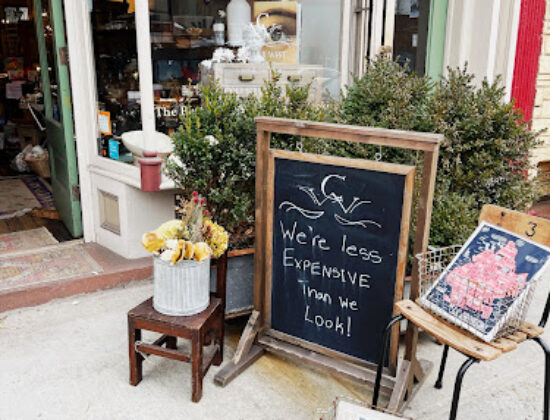 The
We're less
EXPENSIVE
Than we
Look!
3